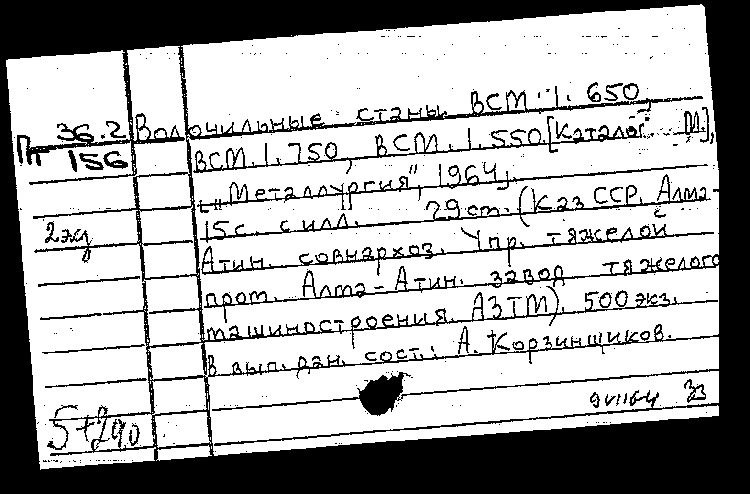 Пт 36.2 Волочильные станы ВСМ.1.650,
156 ВСМ.1.750, ВСМ.1.550. [Каталог. М.],
„Металлургия", 1964.
2 экз 15 с. с илл. 29 см. (Каз ССР. Алма-
Атин. совнархоз. Упр. тяжелой
пром. Алма-Атин. завод тяжелого
машиностроения. АЗТМ). 500 экз.
В вып. дан. сост.: А. Корзинщиков.
33